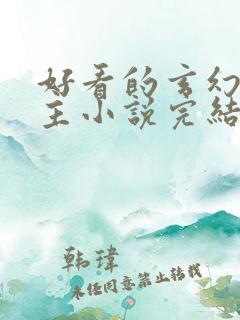 好看的玄幻
主小说完结
韩瑋
未经同意禁止转载